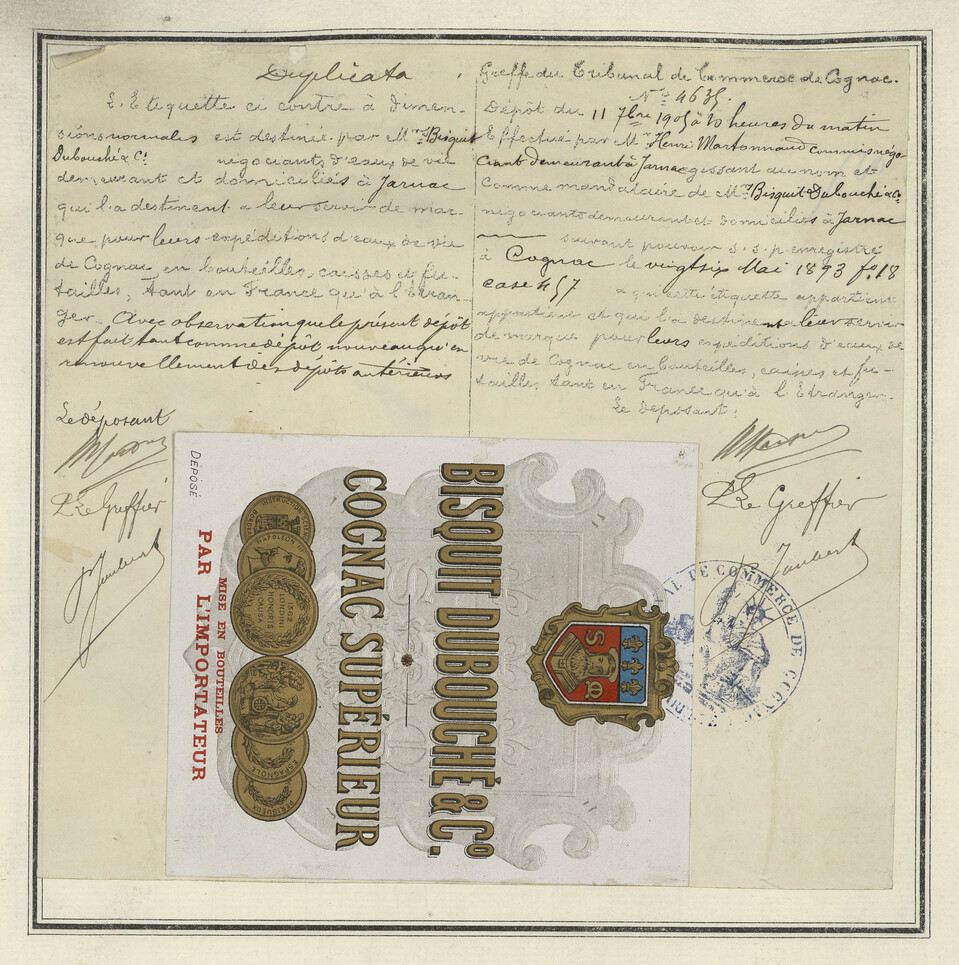 Duplicata
L'Etiquette ci contre à dimen-
sions normales est destinée par MM.rs Bisquit
Dubouché & C° négociants d'eaux de vie
demeurant et domiciliés à Jarnac
qui l'a destinent a leur servir de mar-
que pour leurs expéditions d'eaux de vie
de Cognac en bouteilles, caisses et fu-
tailles, tant en France qu'à l'Etran-
ger. Avec observation que le présent dépôt
est fait tant comme dépôt nouveau qu'en
renouvellement des dépôts antérieurs
Le déposant
Le Greffier
Greffe du Tribunal de Commerce de Cognac.
N° 4635.
Dépôt du 11 7bre 1905 à 10 heures du matin
Effectué par Mr Henri Martonnaud commis négo-
ciant demeurant à Jarnac agissant au nom et
comme mandataire de MM.rs Bisquit Dubouché & C°
négociants demeurant et domiciliés à Jarnac
suivant pouvoir s.s.p. enregistré
à Cognac le vingt six Mai 1893 f° 18
case 457 a qui cette étiquette appartient
appartient et qui l'a destinent a leur servir
de marque pour leurs expéditions d'eaux de
vie de Cognac en bouteilles, caisses et fu-
tailles, tant en France qu'à l'Etranger.
Le déposant:
Le Greffier
Jaubert
TRIBUNAL DE COMMERCE DE COGNAC
BISQUIT DUBOUCHÉ & C°.
COGNAC SUPÉRIEUR
NAPOLEON III
1862
LONDINI
HONORIS
CAUSA
ESPAGNOLA
PERIGUEUX
MISE EN BOUTEILLES
PAR L'IMPORTATEUR
DÉPOSÉ